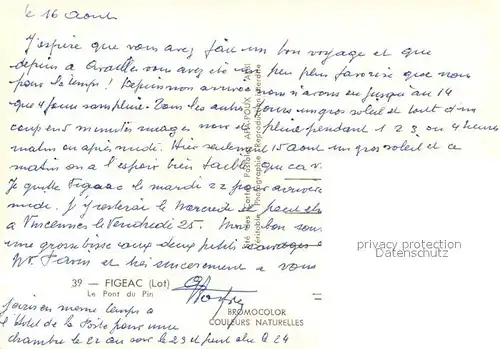 le 16 Août
J'espère que vous avez fait un bon voyage et que
depuis à vous avez été un peu plus favorisé que nous
pour le temps! Depuis mon arrivée nous n'avons eu jusqu'au 14
que 4 jours sans pluie. Tous les autres jours un gros soleil et tout d'un
coup en 5 minutes nuages noirs et pluie pendant 1 2 3 ou 4 heures
matin ou après midi. Hier seulement 15 août un gros soleil et ce
matin on a l'espoir bien faible car
Je quitte Figeac le mardi 22 pour arriver
midi. J'y resterai le Mercredi et peut etre
à Vincennes le Vendredi 25. bon sou
une grosse bise aux deux petits
et très sincerement à vous
39 — FIGEAC (Lot)
Le Pont du Pin
BROMOCOLOR
COULEURS NATURELLES
privacy protection
Datenschutz
j'écris en même temps à
l'Hotel de la Poste pour une
chambre le 22 au soir le 23 et peut etre le 24